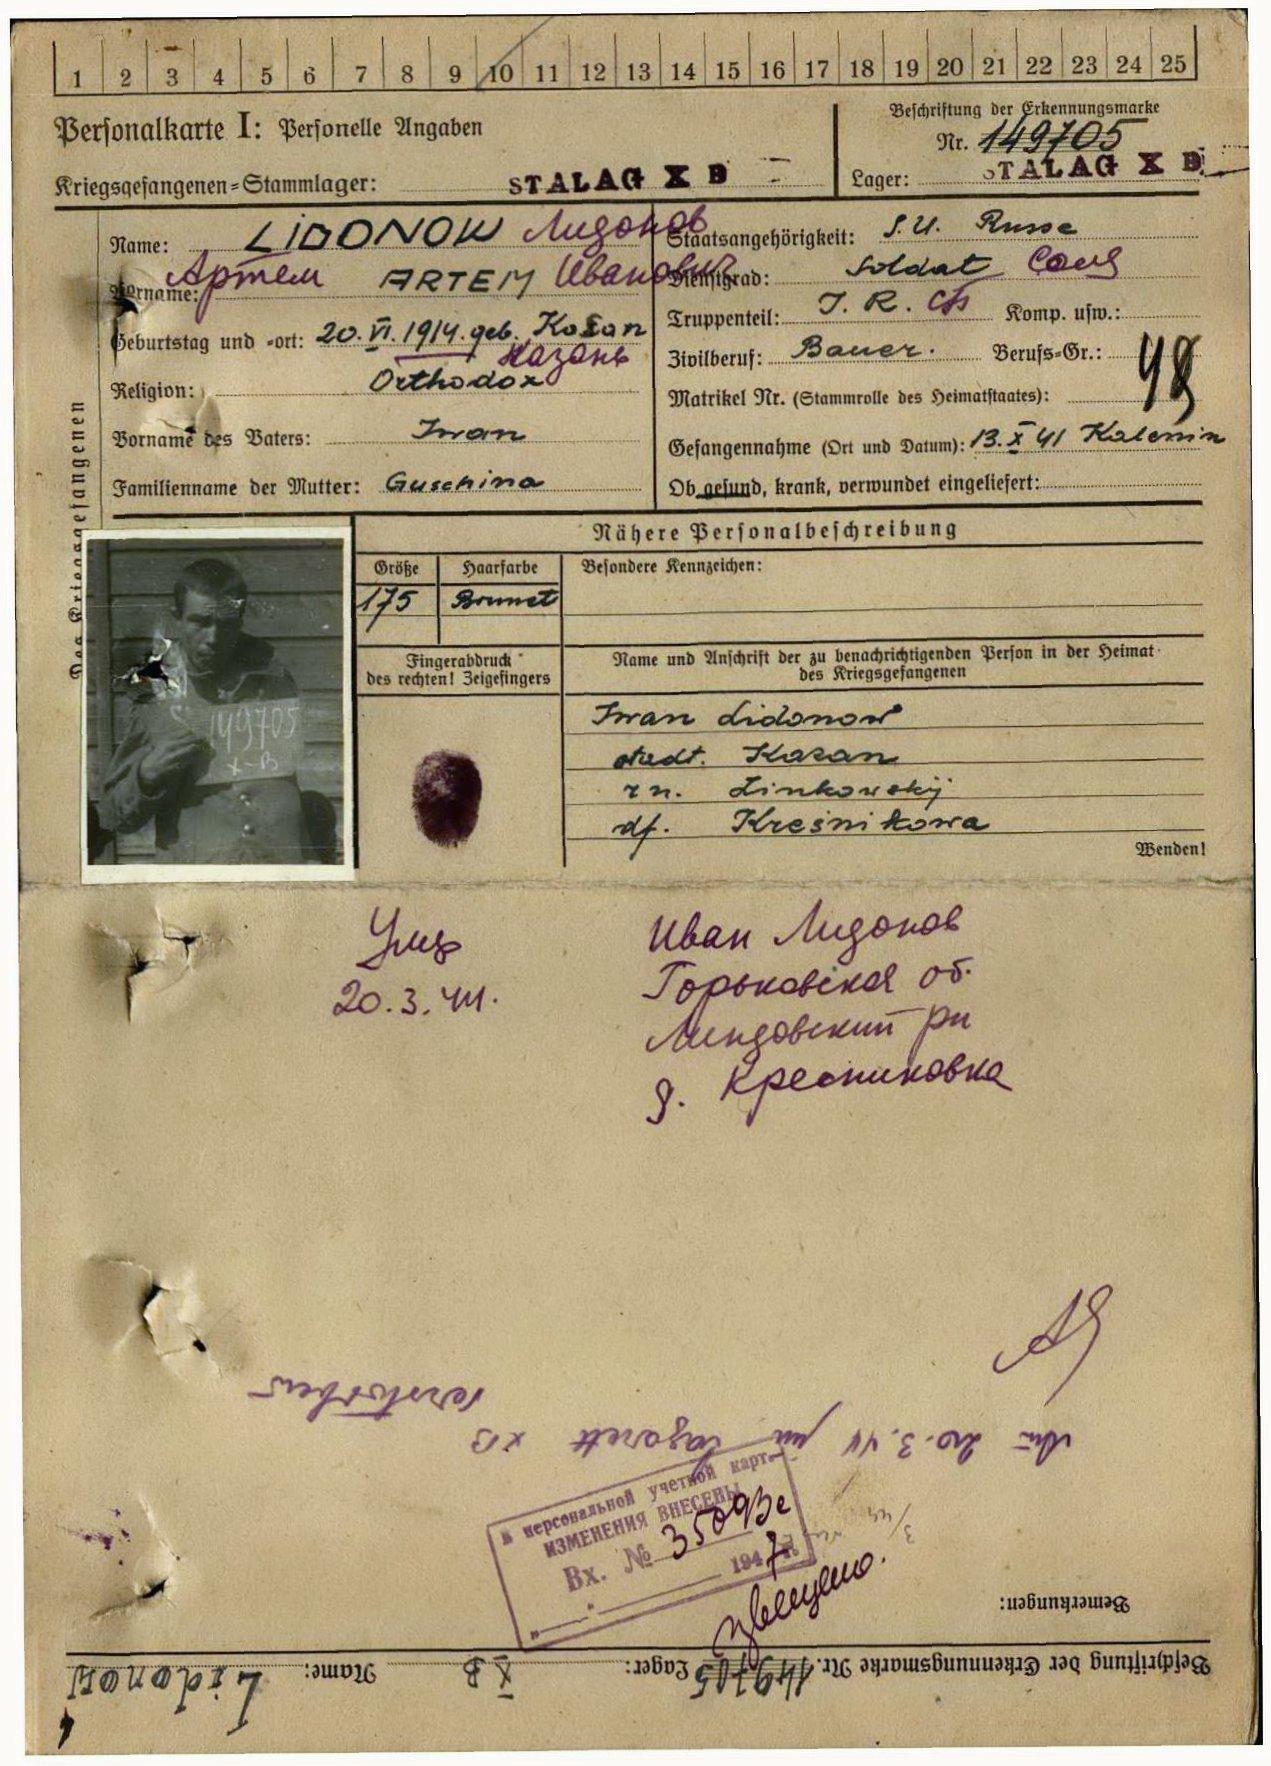 1 2 3 4 5 6 7 8 9 10 11 12 13 14 15 16 17 18 19 20 21 22 23 24 25
Personalkarte I: Personelle Angaben
Kriegsgefangenen=Stammlager: STALAG X B
Beschriftung der Erkennungsmarke
Nr. 149705
Lager: STALAG X B
Des Kriegsgefangenen
Name: LIDONOW Лидонов
Vorname: Артем ARTEM Иванович
Geburtstag und =ort: 20. VI. 1914. geb. Kasan
Казань
Religion: Orthodox
Vorname des Vaters: Iwan
Familienname der Mutter: Guschina
Staatsangehörigkeit: S.U. Russe
Dienstgrad: Soldat Солд
Truppenteil: I. R. Komp. usw.:
Zivilberuf: Bauer. Berufs=Gr.:
Matrikel Nr. (Stammrolle des Heimatstaates):
Gefangennahme (Ort und Datum): 13. X 41 Kalenin
Ob gesund, krank, verwundet eingeliefert:
Nähere Personalbeschreibung
Größe Haarfarbe Besondere Kennzeichen:
175 Brunet
Fingerabdruck
des rechten! Zeigefingers
Name und Anschrift der zu benachrichtigenden Person in der Heimat
des Kriegsgefangenen
149705
X-B
Iwan Lidonow
stadt. Kasan
rn. Linkowskij
df. Kresnikowa
Wenden!
Умер
20.3.44.
Иван Лидонов
Горьковская об.
Линдовский рн
д. Кресниковка
Am 20.3.44 im Lazarett XB
verstorben
В персональной учетной карт.
ИЗМЕНЕНИЯ ВНЕСЕНЫ
Вх. № 35093с
194 7 г.
Bemerkungen:
Beschriftung der Erkennungsmarke Nr. 149705 Lager: X B Name: Lidonow